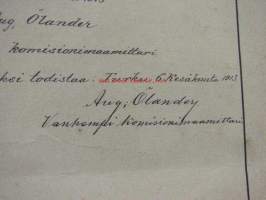 Aug. Ölander
Komisionimaamittari
ksi todistaa. Turku 6 Kesäkuuta 1913
Aug. Ölander
Vanhempi Komisionimaamittari